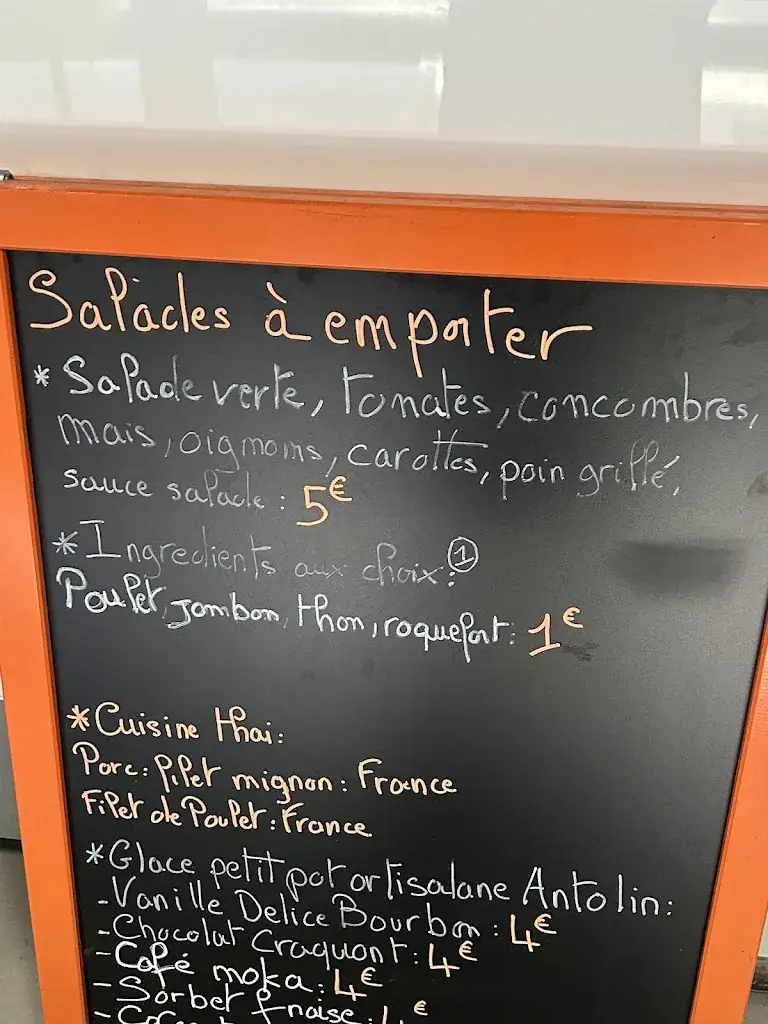 Salades à emporter
* Salade verte, tomates, concombres,
mais, oignons, carottes, pain grillé,
sauce salade : 5€
* Ingredients aux choix : ①
Poulet, jambon, thon, roquefort : 1€
* Cuisine thai :
Porc : filet mignon : France
Filet de Poulet : France
* Glace petit pot artisalane Antolin :
- Vanille Delice Bourbon : 4€
- Chocolat Craquant : 4€
- Café moka : 4€
- Sorbet fraise : 4€